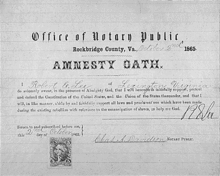 Office of Notary Public,
Rockbridge County, Va. October 2nd 1865
AMNESTY OATH.
I Robert E. Lee of Lexington Virginia
do solemnly swear, in the presence of Almighty God, that I will henceforth faithfully support, protect
and defend the Constitution of the United States, and the Union of the States thereunder, and that I
will, in like manner, abide by and faithfully support all laws and proclamations which have been made
during the existing rebellion with reference to the emancipation of slaves, so help me God.
R E Lee
Sworn to and subscribed before me, this
day of October 1865
Notary Public.